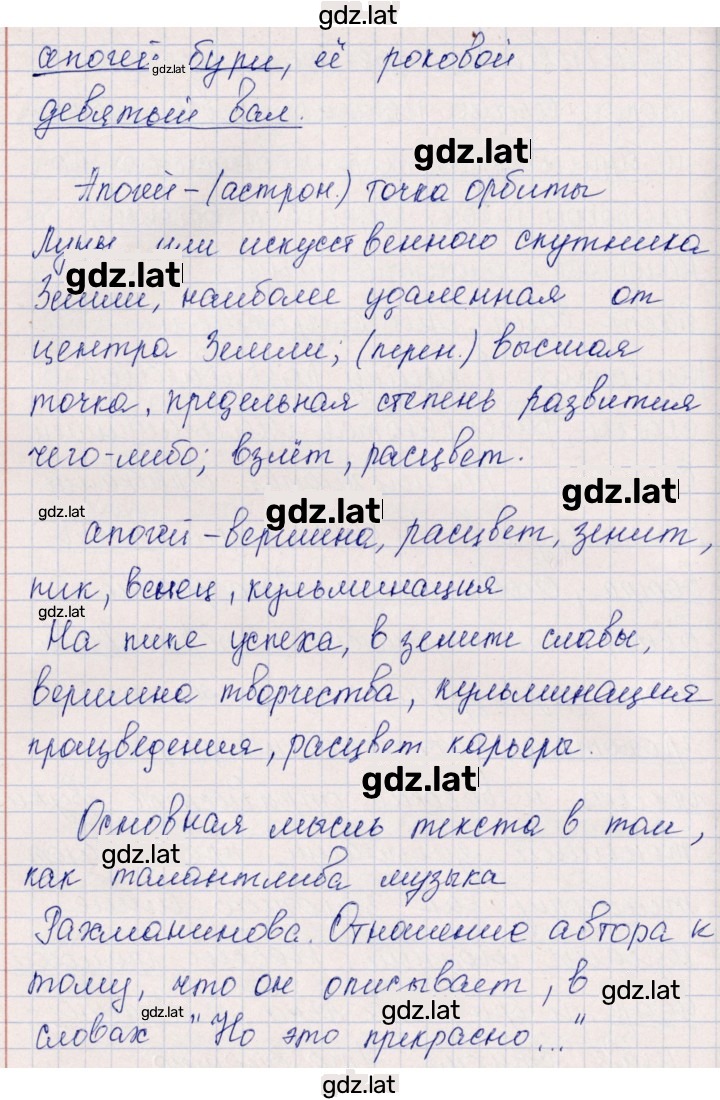 gdz.lat
апогей бури, её роковой
gdz.lat
девятый вал.
gdz.lat
Апогей – (астрон.) точка орбиты
Луны или искусственного спутника
gdz.lat
Земли, наиболее удаленная от
центра Земли; (перен.) высшая
точка, предельная степень развития
чего-либо; взлёт, расцвет.
gdz.lat
gdz.lat
gdz.lat
апогей – вершина, расцвет, зенит,
пик, венец, кульминация
gdz.lat
На пике успеха, в зените славы,
вершина творчества, кульминация
произведения, расцвет карьеры.
gdz.lat
Основная мысль текста в том,
gdz.lat
как талантлива музыка
Рахманинова. Отношение автора к
тому, что он описывает, в
gdz.lat
gdz.lat
gdz.lat
словах "Но это прекрасно..."
gdz.lat